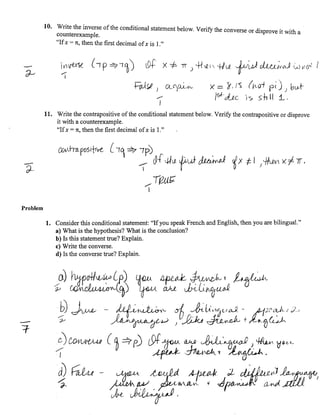 10. Write the inverse of the conditional statement below. Verify the converse or disprove it with a
counterexample.
"If x = π, then the first decimal of x is 1."
inverse (¬p ⇒ ¬q) If x ≠ π, then the first decimal is not 1
2
1
False, again x = 8.15 (not pi), but
1 1st dec is still 1.
11. Write the contrapositive of the conditional statement below. Verify the contrapositive or disprove
it with a counterexample.
"If x = π, then the first decimal of x is 1."
contrapositive (¬q ⇒ ¬p)
2
- If the first decimal of x ≠ 1, then x ≠ π.
1
- TRUE
1
Problem
1. Consider this conditional statement: "If you speak French and English, then you are bilingual."
a) What is the hypothesis? What is the conclusion?
b) Is this statement true? Explain.
c) Write the converse.
d) Is the converse true? Explain.
a) hypothesis (p) you speak French + English
2 conclusion (q) you are bilingual
b) True - definition of bilingual - speak 2
2 languages, like French + English
7
c) converse (q ⇒ p) If you are bilingual, then you
1 speak French + English.
d) False - you could speak 2 different languages,
2 such as German + Spanish and still
be bilingual.